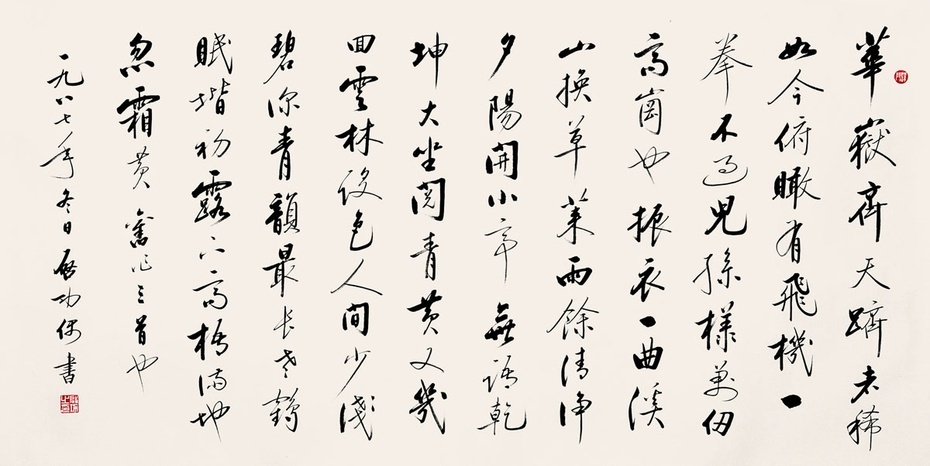 華嶽齊天躋者稀
如今俯瞰有飛機一
拳不過兒孫樣萬仞
高崗也振衣一曲溪
山換草萊雨餘清淨
夕陽開小亭無語乾
坤大坐閱青黃又幾
回雲林設色人間少淺
碧深青韻最長老鶴
眠堦初露下高梧滿地
忽霜黃 舊作三首也
一九八七年冬日啟功偶書